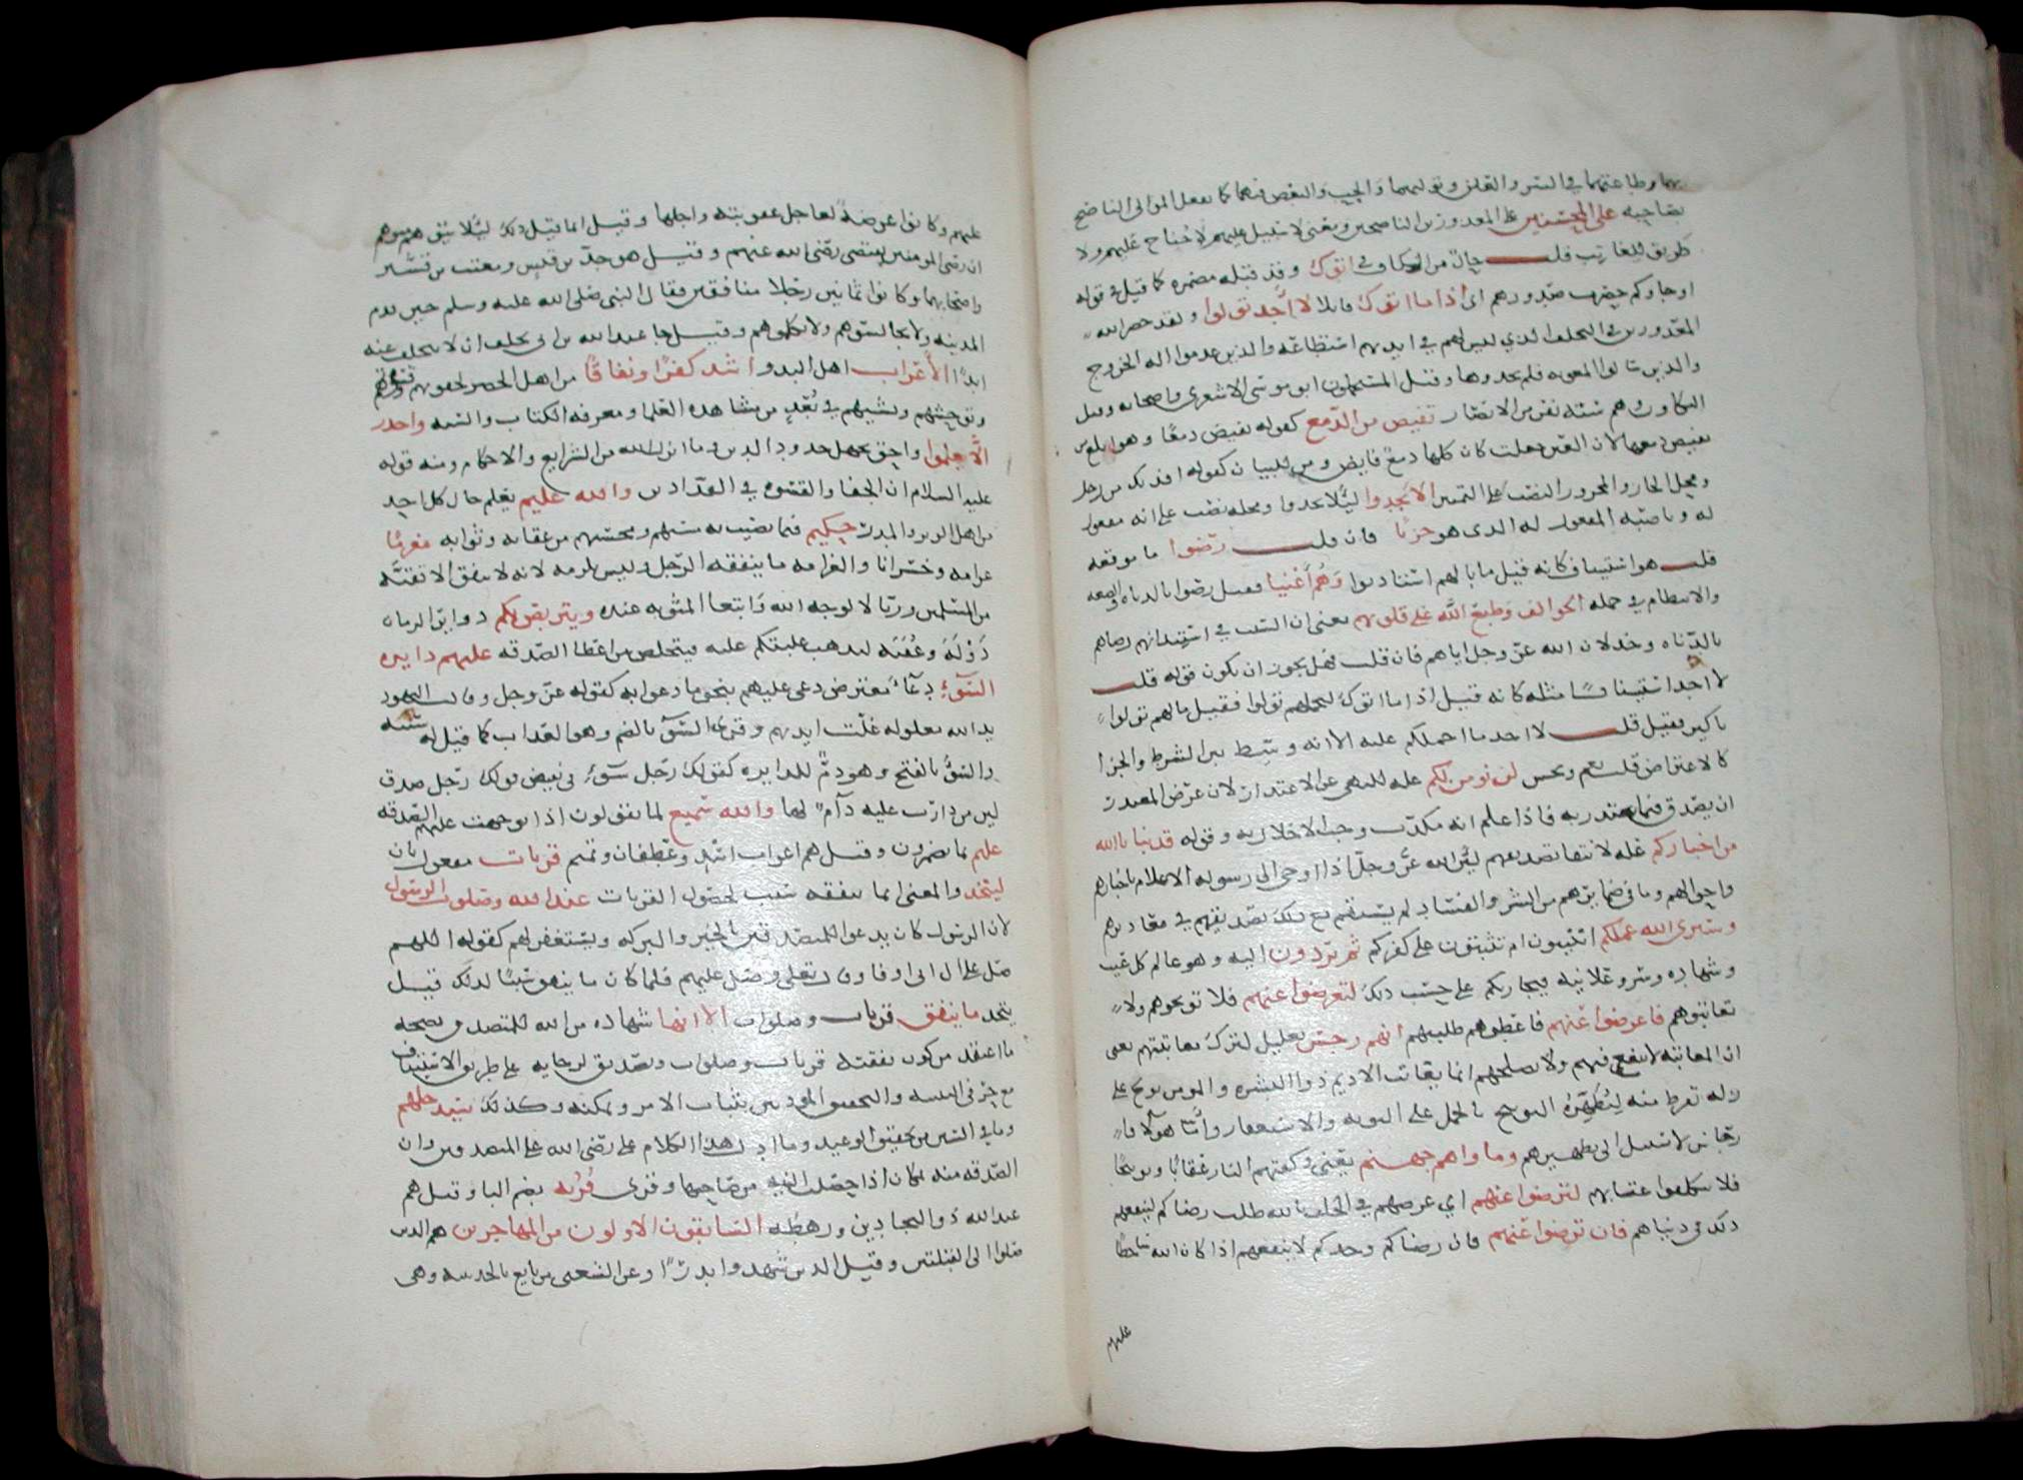 بهما وطاعتهما في السر والعلن وتوليهما والحب والبغض فيهما كما يفعل الموالى الناصح
بصاحبه على المحسنين على المعذورين الناصحين ومعنى لا سبيل عليهم لا جناح عليهم ولا
طريق للعاتب قلت حال من الكاف في اتوك وقد قبله مضمره كما قيل في قوله
او جاوكم حصرت صدورهم اى اذا ما اتوك قايلا لا اجد تولوا ولقد حصر الله
المعذورين في التخلف الذي ليس لهم في ابدانهم استطاعه والذين عدموا اله الخروج
والذين سالوا المعونه فلم يجدوها وقيل المستحملون ابو موسى الاشعرى واصحابه وقيل
البكاون وهم سته نفر من الانصار تفيض من الدمع كقوله تفيض دمعا وهو ابلغ من
يفيض دمعها لان العين جعلت كان كلها دمع فايض ومن للبيان كقوله افديك من رجل
ومحل الجار والمجرور النصب على التمييز الا يجدوا ليلا يجدوا ومحله نصب على انه مفعول
له وناصبه المفعول له الذى هو حزنا فان قلت رضوا ما موقعه
قلت هو استيناف كانه قيل ما بالهم استاذنوا وهم اغنيا فقيل رضوا بالدناه والضعه
والانتظام في جمله الخوالف وطبع الله على قلوبهم يعنى ان السبب في استيذانهم رضاهم
بالدناه وخذلان الله عز وجل اياهم فان قلت فهل يجوز ان يكون قوله قلت
لا اجد استينافا مثله كانه قيل اذا ما اتوك لتحملهم تولوا فقيل ما لهم تولوا
باكين فقيل قلت لا اجد ما احملكم عليه الا انه وسط بين الشرط والجزا
كالاعتراض قلت نعم ويحسن لن نومن لكم عله للنهى عن الاعتذار لان غرض المعتذر
ان يصدق فيما يعتذر به فاذا علم انه مكذب وجب الاخلال به وقوله قد نبانا الله
من اخباركم عله لانتفا تصديقهم لان الله عز وجل اذا اوحى الى رسوله الاعلام باخبارهم
واحوالهم وما في ضمايرهم من الشر والفساد لم يستقم مع ذلك تصديقهم في معاذيرهم
وسيرى الله عملكم اتنيبون ام تثبتون على كفركم ثم تردون اليه وهو عالم كل غيب
وشهاده وسر وعلانيه فيجازيكم على حسب ذلك لتعرضوا عنهم فلا توبخوهم ولا
تعاتبوهم فاعرضوا عنهم فاعطوهم طلبتهم انهم رجس تعليل لترك معاتبتهم يعنى
ان المعاتبه لا تنفع فيهم ولا تصلحهم انما يعاتب الاديم ذوا البشره والمومن يوبخ على
زله تفرط منه ليطهره التوبيخ بالحمل على التوبه والاستغفار واما هولا فا
رجاس لا سبيل الى تطهيرهم وماواهم جهنم يعنى وكفتهم النار عقابا وتوبيخا
فلا تتكلفوا عتابهم لترضوا عنهم اي غرضهم في الحلف بالله طلب رضاكم لينفعهم
ذلك في دنياهم فان ترضوا عنهم فان رضاكم وحدكم لا ينفعهم اذا كان الله ساخطا
عليهم
عليهم وكانوا عرضة لعاجل عقوبته واجلها وقيل انما قيل ذلك ليلا يتوهم متوهم
ان رضى المومنين يقتضى رضى الله عنهم وقيل هو جد بن قيس ومعتب بن قشير
واصحابهما وكانوا ثمانين رجلا منافقين فقال النبى صلى الله عليه وسلم حين قدم
المدينه ولا تجالسوهم ولا تكلموهم وقيل جا عبد الله بن ابى يحلف ان لا يتخلف عنه
ابدا الأعراب اهل البدو اشد كفرا ونفاقا من اهل الحضر لجفوتهم وقسوتهم
وتوحشهم ونشيهم في بعد من مشاهده العلما ومعرفه الكتاب والسنه واجدر
الا يعلموا واحق بجهل حدود الدين وما انزل الله من الشرايع والاحكام ومنه قوله
عليه السلام ان الجفا والقسوه في الفدادين والله عليم يعلم حال كل احد
من اهل الوبر والمدر حكيم فيما يصيب به مسيهم ومحسنهم من عقابه وثوابه مغرما
غرامه وخسرانا والغرامه ما ينفقه الرجل وليس يلزمه لانه لا ينفق الا تقية
من المسلمين وريا لا لوجه الله وابتغا المثوبه عنده ويتربص بكم دوايرالزمان
دوله وعقبه لتذهب غلبتكم عليه فيتخلص من اعطا الصدقه عليهم دايره
السوء دعاء معترض دعى عليهم بنحو ما دعوا به كقوله عز وجل وقالت اليهود
يد الله مغلوله غلت ايديهم وقرى السوء بالضم وهو العذاب كما قيل له سيئه
والسوء بالفتح وهو ذم للدايره كقولك رجل سوء في نقيض قولك رجل صدق
لان من دارت عليه ذام لها والله سميع لما يقولون اذا توجهت عليهم الصدقه
عليم بما يضمرون وقيل هم اعراب اسد وغطفان وتميم قربات مفعول ثان
ليتخذ والمعنى ان ما ينفقه سبب لحصول القربات عند الله وصلوات الرسول
لان الرسول كان يدعوا للمتصدقين بالخير والبركه ويستغفر لهم كقوله اللهم
صل على ال ابى اوفا وقال تعلى وصل عليهم فلما كان ما ينفق سببا لذلك قيل
يتخذ ما ينفق قربات وصلوات الا انها شهاده من الله للمتصدق بصحه
ما اعتقد من كون نفقته قربات وصلوات وتصديق لرجايه على طريق الاستيناف
مع حرفى التنبيه والتحقيق الموذنين بثبات الامر وتمكنه وكذلك سيدخلهم
وما في السين من تحقيق الوعيد وما ادل هذا الكلام على رضى الله على المتصدقين وان
الصدقه منه بمكان اذا خلصت النيه من صاحبها وقرى قربه بضم البا وقيل هم
عبد الله ذو البجادين ورهطه السابقون الاولون من المهاجرين هم الذين
صلوا الى القبلتين وقيل الذين شهدوا بدرا وعن الشعبى من بايع بالحديبيه وهى